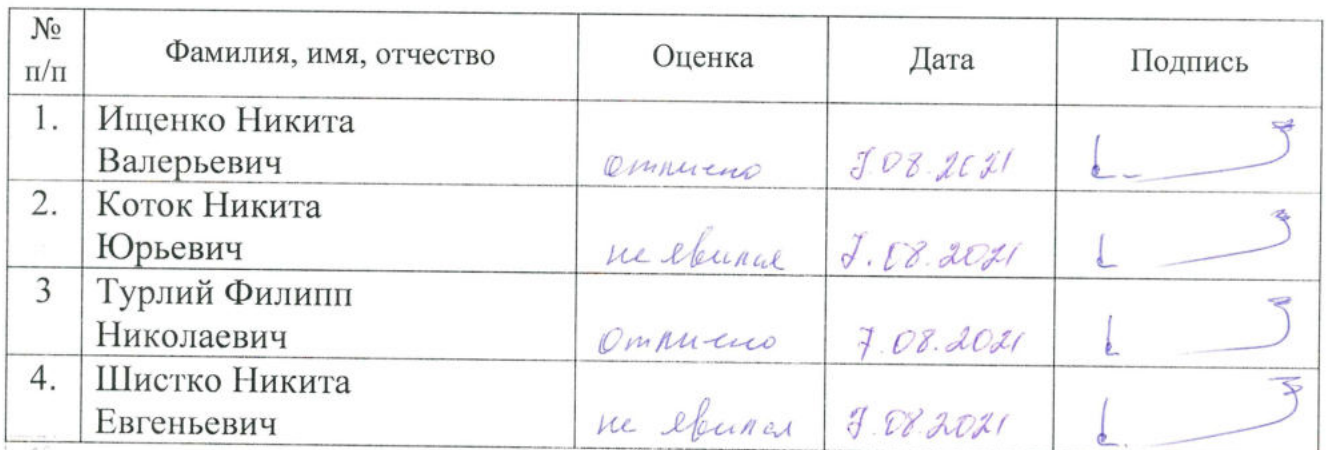 № п/п Фамилия, имя, отчество Оценка Дата Подпись
1. Ищенко Никита
Валерьевич отлично 7.08.2021
2. Коток Никита
Юрьевич не явился 7.08.2021
3 Турлий Филипп
Николаевич отлично 7.08.2021
4. Шистко Никита
Евгеньевич не явился 7.08.2021